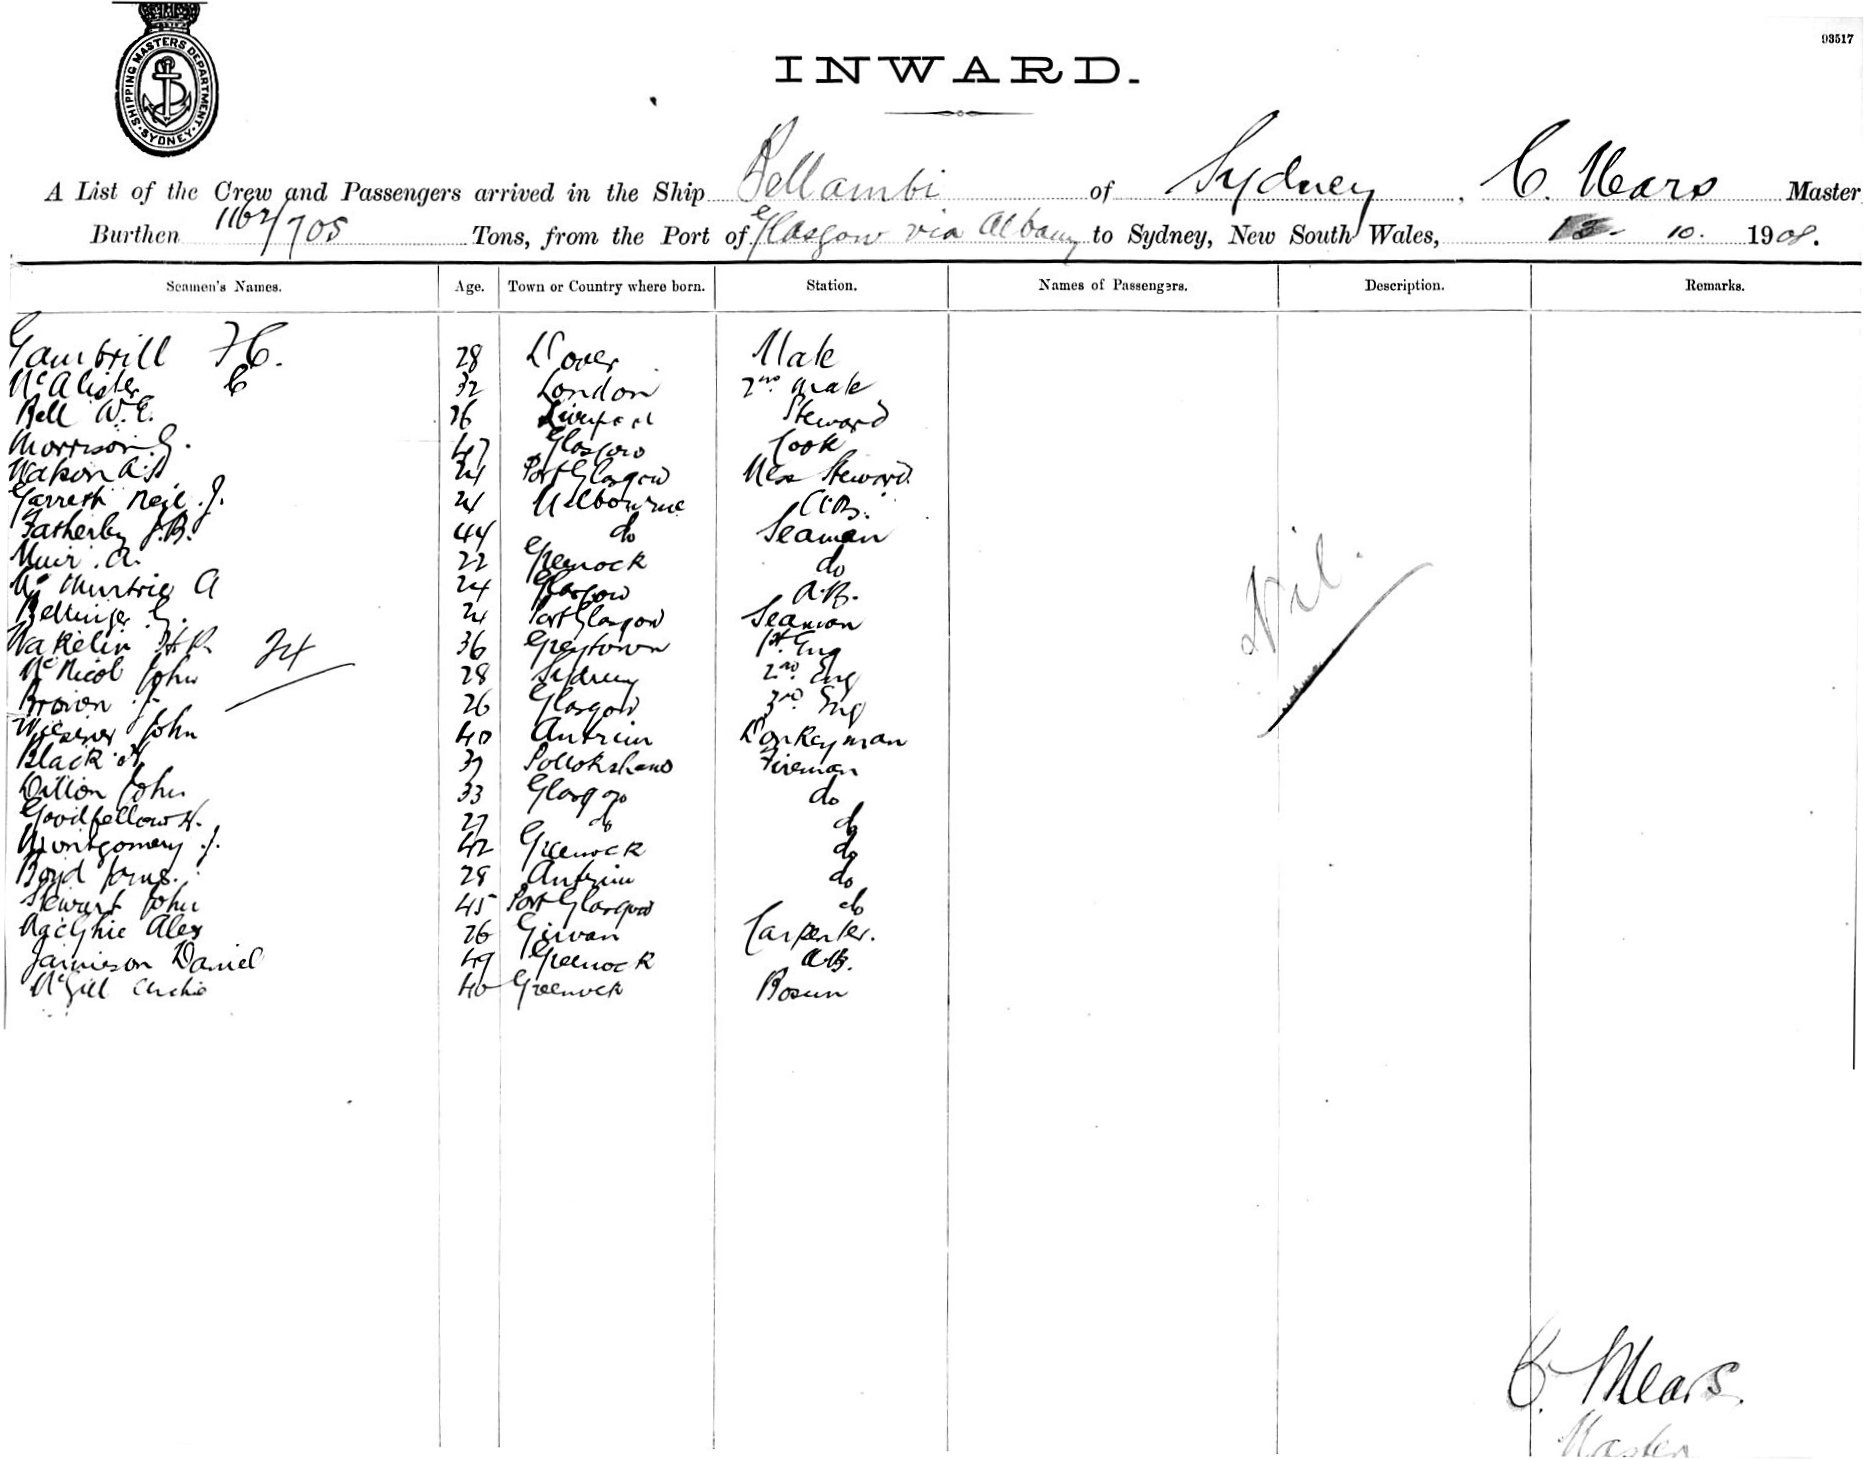 SHIPPING MASTERS DEPARTMENT. SYDNEY.
93517
INWARD.
A List of the Crew and Passengers arrived in the Ship Bellambi of Sydney, C. Mears Master
Burthen 1162/705 Tons, from the Port of Glasgow via Albany to Sydney, New South Wales, 13 - 10. 1908.
Seamen's Names. Age. Town or Country where born. Station. Names of Passengers. Description. Remarks.
Gambrill F C. 28 Dover Mate
McAlister C 32 London 2nd Mate
Bell W. E. 26 Liverpool Steward
Morrison G. 47 Glasgow Cook
Watson A. 24 Port Glasgow Mess Steward
Garreth Neil J. 24 Melbourne A.B.
Fatherly J. B. 44 do Seaman
Muir A. 22 Greenock do
McMurtrie A 24 Glasgow A.B.
Bellinger G. 24 Port Glasgow Seaman
Wakelin H R 36 Greytown 1st Eng
24
McNicol John 28 Sydney 2nd Eng
Brown J 26 Glasgow 3rd Eng
John 40 Antrim Donkeyman
Black H 37 Pollokshaws Fireman
Dillon John 33 Glasgow do
Goodfellow H. 27 do do
Montgomery J. 42 Greenock do
Boyd James. 28 Antrim do
Stewart John 45 Port Glasgow do
McGhie Alex 26 Girvan Carpenter.
Jamieson Daniel 49 Greenock A.B.
McGill Archie 40 Greenock Bosun
Nil.
C. Mears.
Master